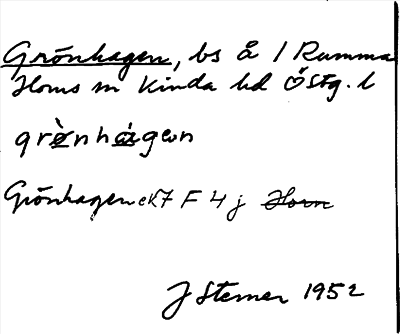 Grönhagen, bs å 1 Rumma
Horns sn Kinda hd Östg. l
grø̀nhá̱gən
Grönhagen ek7 F 4 j Horn
J Sterner 1952